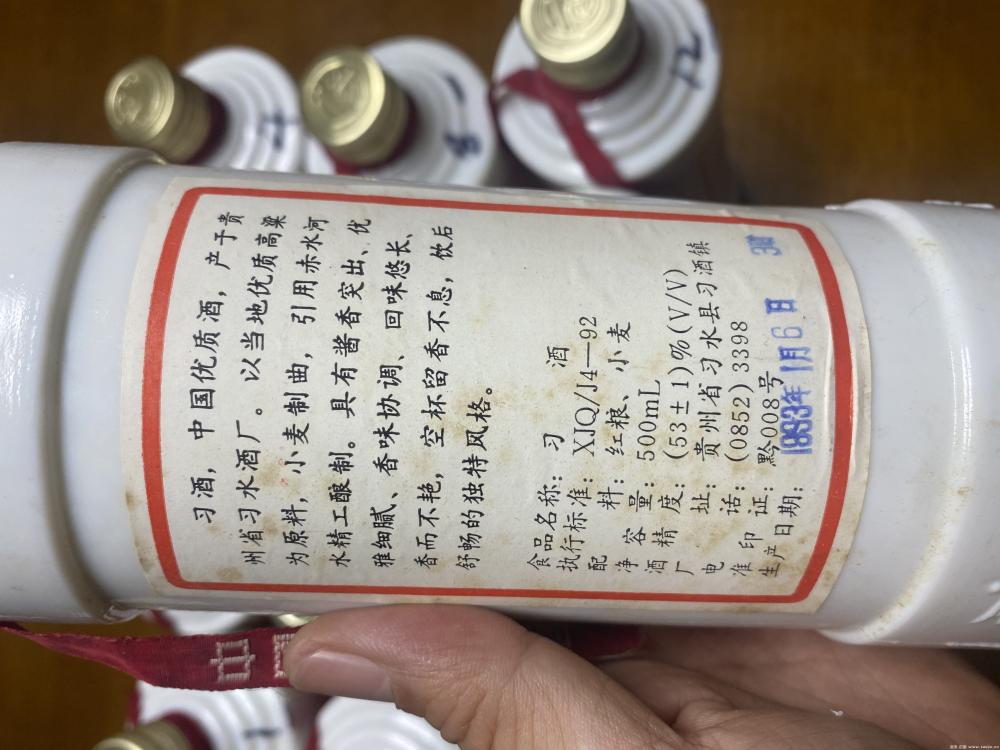 习酒，中国优质酒，产于贵
州省习水酒厂。以当地优质高粱
为原料，小麦制曲，引用赤水河
水精工酿制。具有酱香突出、优
雅细腻、香味协调、回味悠长、
香而不艳，空杯留香不息，饮后
舒畅的独特风格。
食品名称：习酒
执行标准：XIQ/J4—92
配料：红粮、小麦
净容量：500mL
酒精度：(53±1)%(V/V)
厂址：贵州省习水县习酒镇
电话：(0852) 3398
准印证：黔008号
生产日期：1993年1月6日
中